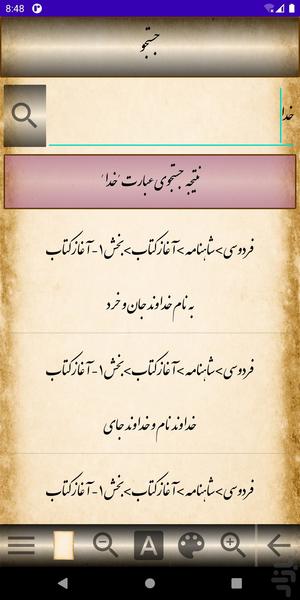 8:48
جستجو
خدا
نتیجه جستجوی عبارت 'خدا'
فردوسی>شاهنامه>آغاز کتاب>بخش ۱ - آغاز کتاب
به نام خداوند جان و خرد
فردوسی>شاهنامه>آغاز کتاب>بخش ۱ - آغاز کتاب
خداوند نام و خداوند جای
فردوسی>شاهنامه>آغاز کتاب>بخش ۱ - آغاز کتاب
A